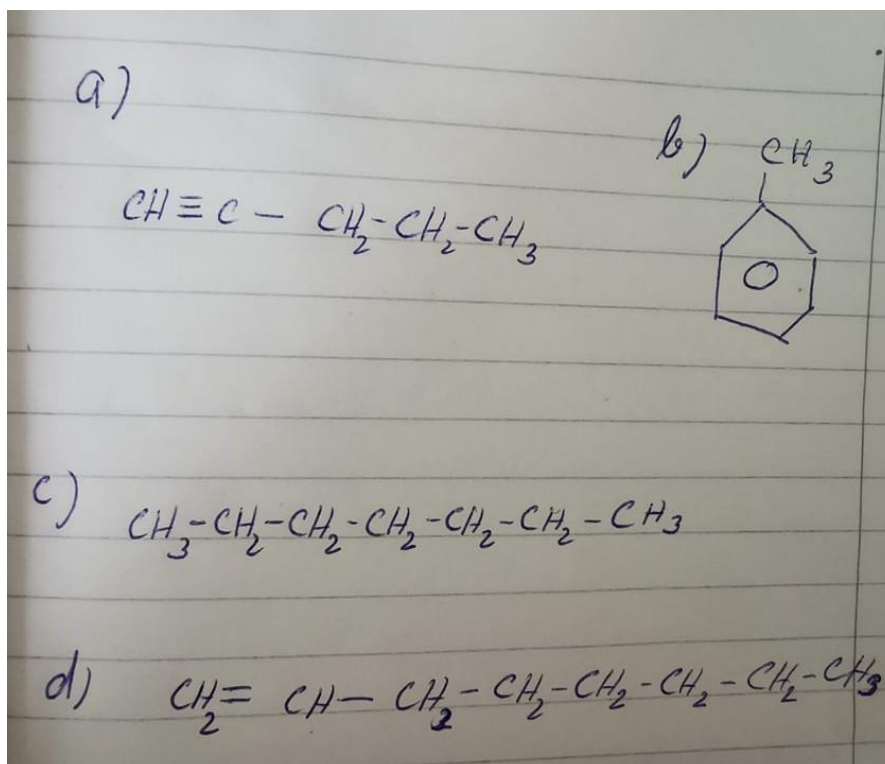 a)
b) CH3
CH ≡ C — CH2-CH2-CH3
c)
CH3-CH2-CH2-CH2-CH2-CH2-CH3
d) CH2= CH— CH2-CH2-CH2-CH2-CH2-CH3